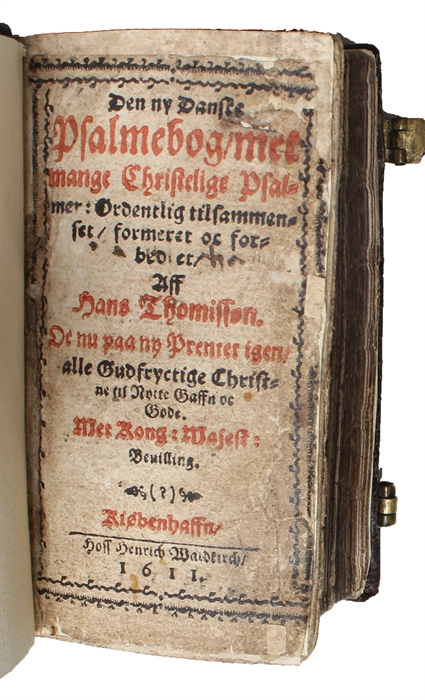 Den ny Danske
Psalmebog/met
mange Christelige Psal-
mer: Ordentlig tilsammen-
set/ formeret oc for-
bedret/
Aff
Hans Thomissøn.
Oc nu paa ny Prentet igen/
alle Gudfryctige Christ-
ne til Nytte Gaffn oc
Gode.
Met Kong: Majest:
Bevilling.
(?)
Kiøbenhaffn/
Hoss Henrich Waldkirch/
1611.